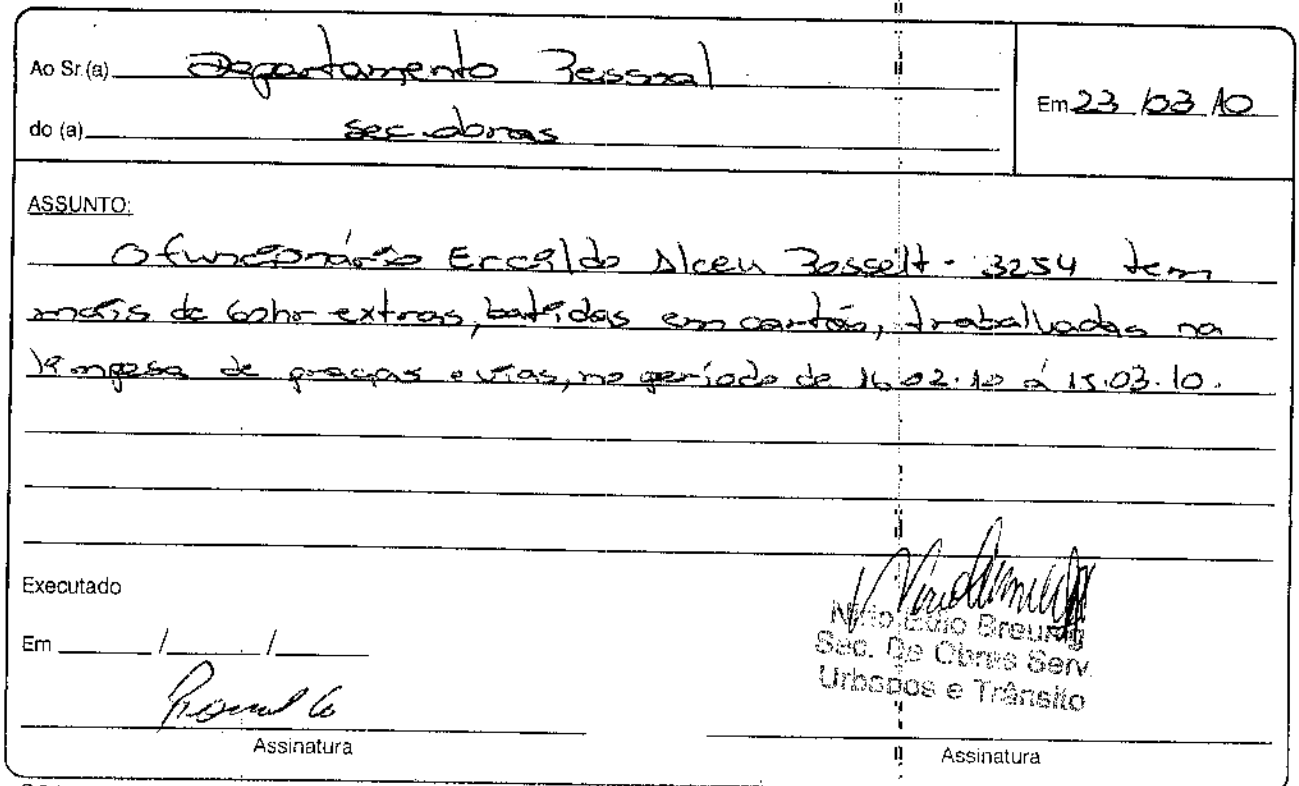 Ao Sr.(a) Departamento Pessoal
Em 23/03/10
do (a) Sec. obras
ASSUNTO:
O funcionário Ercildo Alceu Posselt - 3254 tem
mais de 60hr extras, batidas em cartão, trabalhadas na
limpesa de praças e vias, no período de 16.02.10 á 15.03.10.
Executado
Em / /
Breunig
Sec. De Obras Serv.
Urbanos e Trânsito
Assinatura
Assinatura